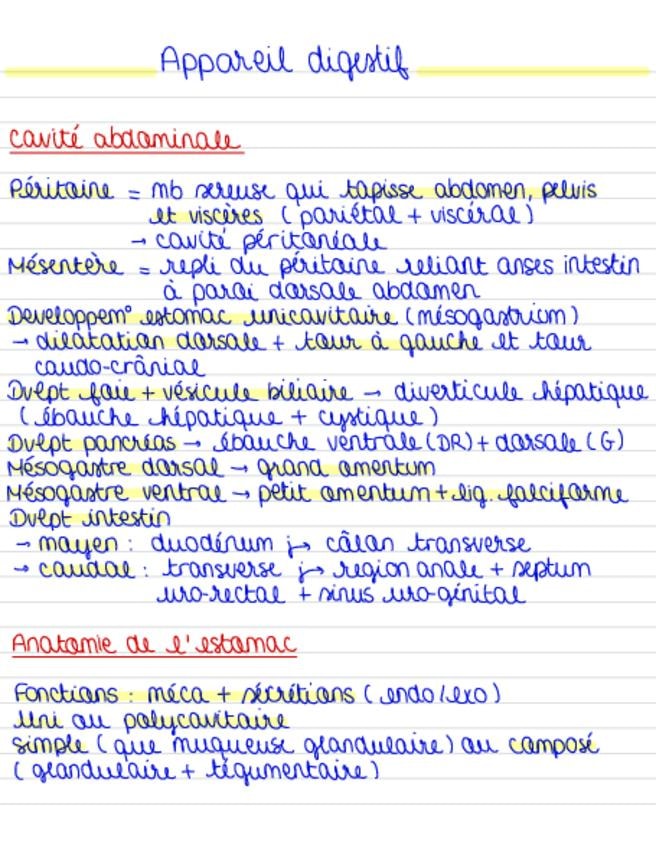 Appareil digestif
Cavité abdominale
Péritoine = mb sereuse qui tapisse abdomen, pelvis
et viscères (pariétal + viscéral)
→ cavité péritonéale
Mésentère = repli du péritoine reliant anses intestin
à paroi dorsale abdomen
Developpem° estomac unicavitaire (mésogastrium)
→ dilatation dorsale + tour à gauche et tour
caudo-crânial
Dvlpt foie + vésicule biliaire → diverticule hépatique
(ébauche hépatique + cystique)
Dvlpt pancréas → ébauche ventrale (DR) + dorsale (G)
Mésogastre dorsal → grand omentum
Mésogastre ventral → petit omentum + lig. falciforme
Dvlpt intestin
→ moyen : duodénum j→ côlon transverse
→ caudal : transverse j→ region anale + septum
uro-rectal + sinus uro-génital
Anatomie de l'estomac
Fonctions : méca + sécrétions (endo/exo)
Uni ou polycavitaire
simple (que muqueuse glandulaire) ou composé
(glandulaire + tégumentaire)